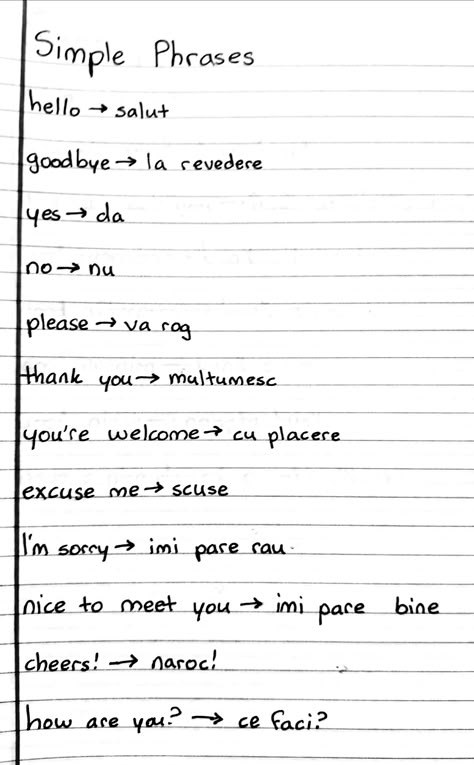 Simple Phrases
hello → salut
goodbye → la revedere
yes → da
no → nu
please → va rog
thank you → multumesc
you're welcome → cu placere
excuse me → scuse
I'm sorry → imi pare rau
nice to meet you → imi pare bine
cheers! → naroc!
how are you? → ce faci?